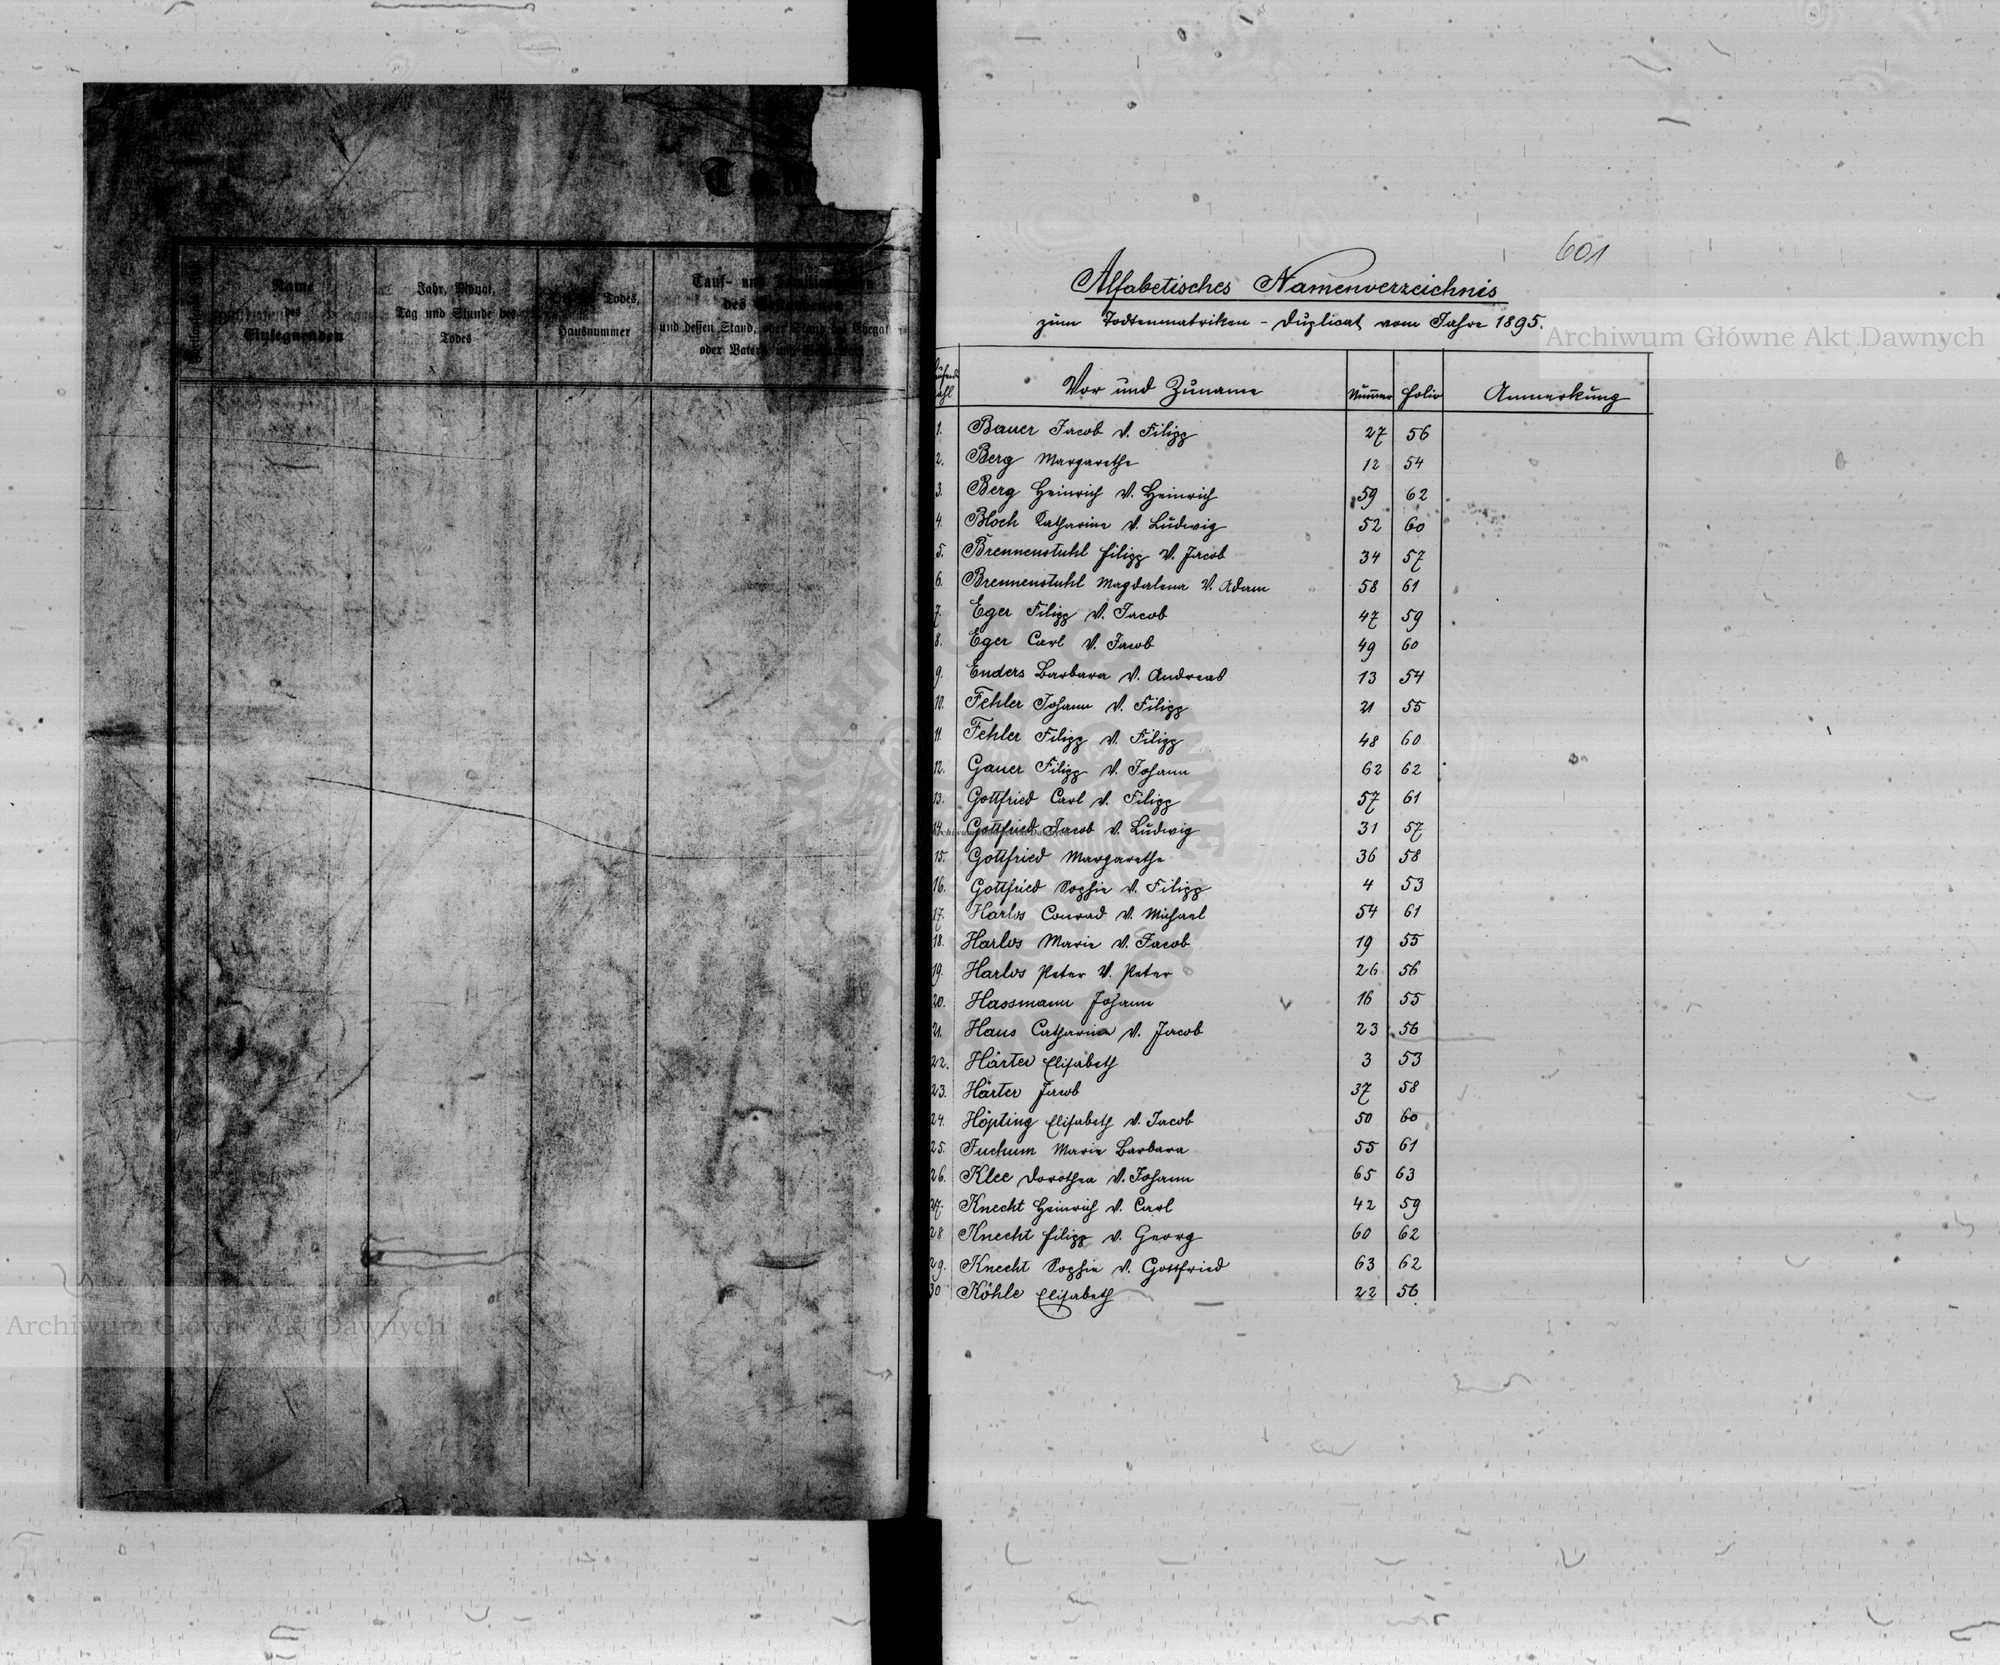 Name
des
Einsegnenden
Jahr, Monat,
Tag und Stunde des
Todes
Todes,
Hausnummer
Tauf- und
des
und dessen Stand, oder Stand des Ehegat
oder Vaters und
601
Alfabetisches Namenverzeichnis
zum Todtenmatriken - Duplicat vom Jahre 1895.
Archiwum Główne Akt Dawnych
Vor und Zuname Nummer Folio Anmerkung
1. Bauer Jacob v. Filipp 27 56
2. Berg Margarethe 12 54
3. Berg Heinrich v. Heinrich 59 62
4. Bloch Katharine v. Ludwig 52 60
5. Brennenstuhl Filipp v. Jacob 34 57
6. Brennenstuhl Magdalena v. Adam 58 61
7. Eger Filipp v. Jacob 47 59
8. Eger Carl v. Jacob 49 60
9. Enders Barbara v. Andreas 13 54
10. Fehler Johann v. Filipp 21 55
11. Fehler Filipp v. Filipp 48 60
12. Gauer Filipp v. Johann 62 62
13. Gottfried Carl v. Filipp 57 61
14. Gottfried Jacob v. Ludwig 31 57
15. Gottfried Margarethe 36 58
16. Gottfried Sophie v. Filipp 4 53
17. Harlos Conrad v. Michael 54 61
18. Harlos Marie v. Jacob 19 55
19. Harlos Peter v. Peter 26 56
20. Hassmann Johann 16 55
21. Haus Catharina v. Jacob 23 56
22. Härter Elisabeth 3 53
23. Härter Jacob 37 58
24. Höpting Elisabeth v. Jacob 50 60
25. Juchum Marie Barbara 55 61
26. Klee Dorothea v. Johann 65 63
27. Knecht Heinrich v. Carl 42 59
28 Knecht Filipp v. Georg 60 62
29. Knecht Sophie v. Gottfried 63 62
30 Köhle Elisabeth 22 56
Archiwum Główne Akt Dawnych